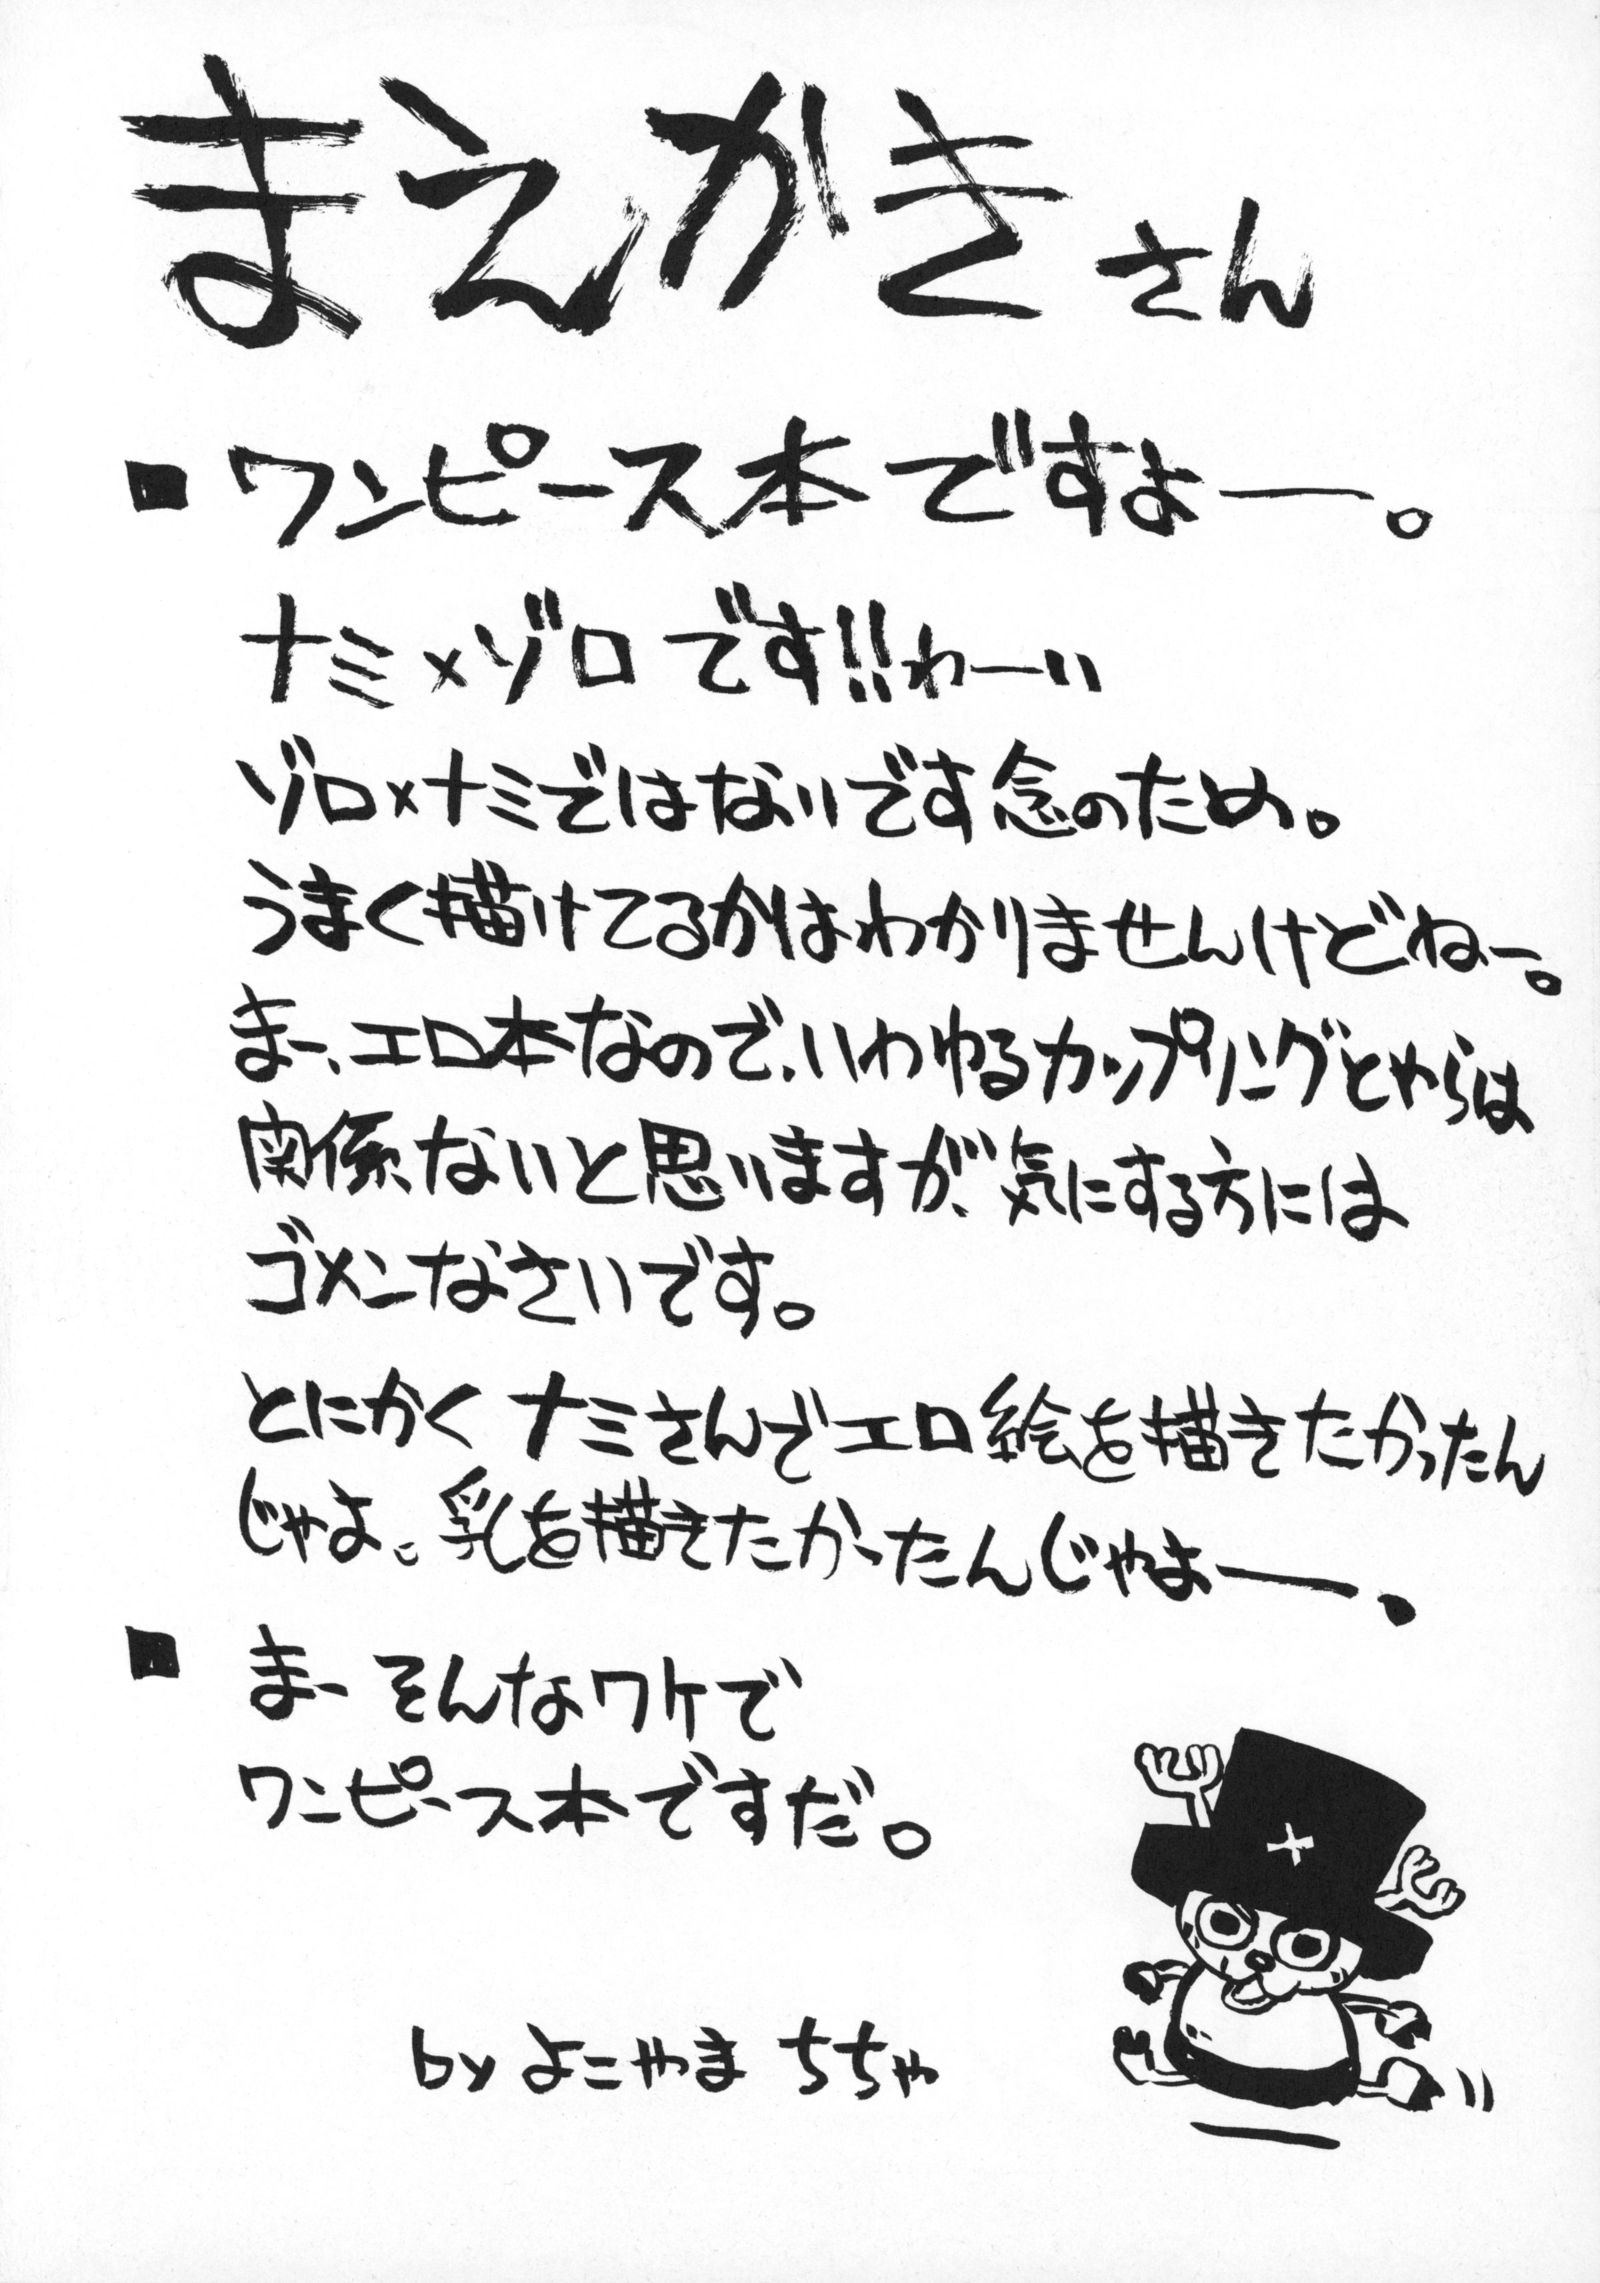 まえかきさん
■ワンピース本ですよー。
ナミ×ゾロです!!わーい
ゾロ×ナミではないです念のため。
うまく描けてるかはわかりませんけどねー。
まー、エロ本なので、いわゆるカップリングとやらは
関係ないと思いますが、気にする方には
ゴメンなさいです。
とにかくナミさんでエロ絵を描きたかったん
じゃよ。乳を描きたかったんじゃよー、
■まーそんなワケで
ワンピース本ですだ。
by よこやま ちちゃ